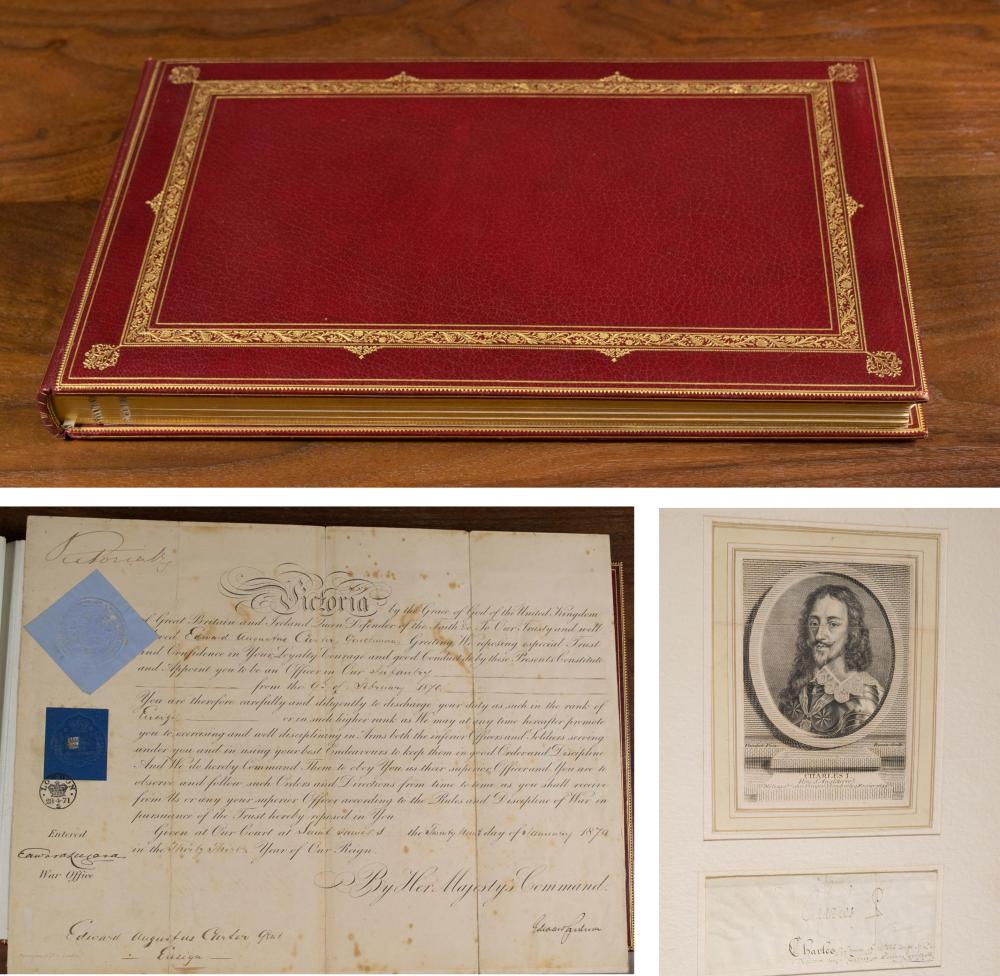 Victoria R
Victoria by the Grace of God of the United Kingdom
of Great Britain and Ireland Queen Defender of the Faith &c To Our Trusty and well
Edward Augustus Carter Gentleman Greeting We reposing especial Trust
and Confidence in Your Loyalty Courage and good Conduct do by these Presents Constitute
and Appoint you to be an Officer in Our Infantry
from the 9th of February 1870
You are therefore carefully and diligently to discharge your duty as such in the rank of
Ensign or in such higher rank as We may at any time hereafter promote
you to exercising and well disciplining in Arms both the inferior Officers and Soldiers serving
under you and in using your best Endeavours to keep them in good Order and Discipline
And We do hereby Command Them to obey You as their superior Officer and You are to
observe and follow such Orders and Directions from time to time as you shall receive
from Us or any your superior Officer according to the Rules and Discipline of War in
pursuance of the Trust hereby reposed in You
Given at Our Court at Saint James's the day of January 1870
in the Thirty Third Year of Our Reign
By Her Majesty's Command
LONDON
28·4·71
Entered
War Office
Edward Augustus Carter Gent
Ensign
CHARLES I.
Roi d'Angleterre
Charles
Charles